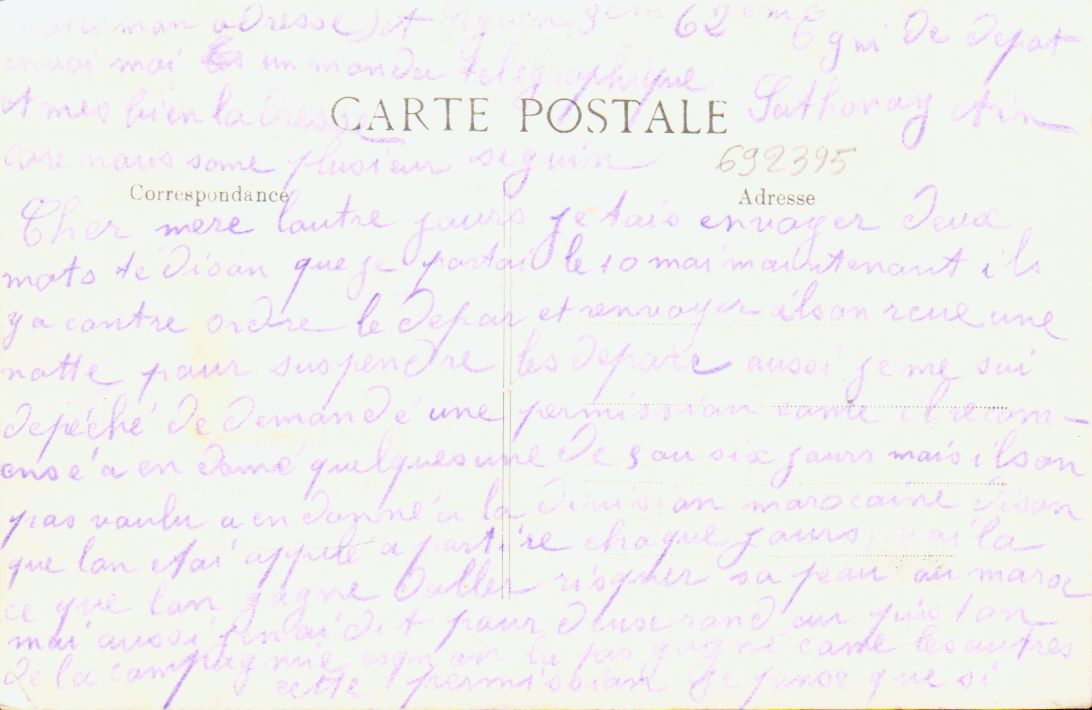 mon adresse Seguin 3em 62em Cgni De depot
envoi moi un manda telegraphique
et mes bien la dresse Sathonay Ain
CARTE POSTALE
care nous some plusieur seguin
692395
Correspondance
Adresse
Cher mere lautre jours je tais envoyer deux
mots te disan que je partai le 10 mai maintenant ils
y a contre ordre le depar et renvoyer ilson recue une
notte pour suspendre les depare aussi je me sui
depéché de demandé une permission come il recom-
ensé a en doné quelquesune de 5 ou six jours mais ilson
pas voulu a en donné a la division marocaine disan
que lon etai appelé a partire chaque jours, voila
ce que lon gagne daller risquer sa peau au maroc
mai aussi jenai dit pour deux rond au piston
de la compagnie esquon la pas gagné come les autres
cette permission je pense que si